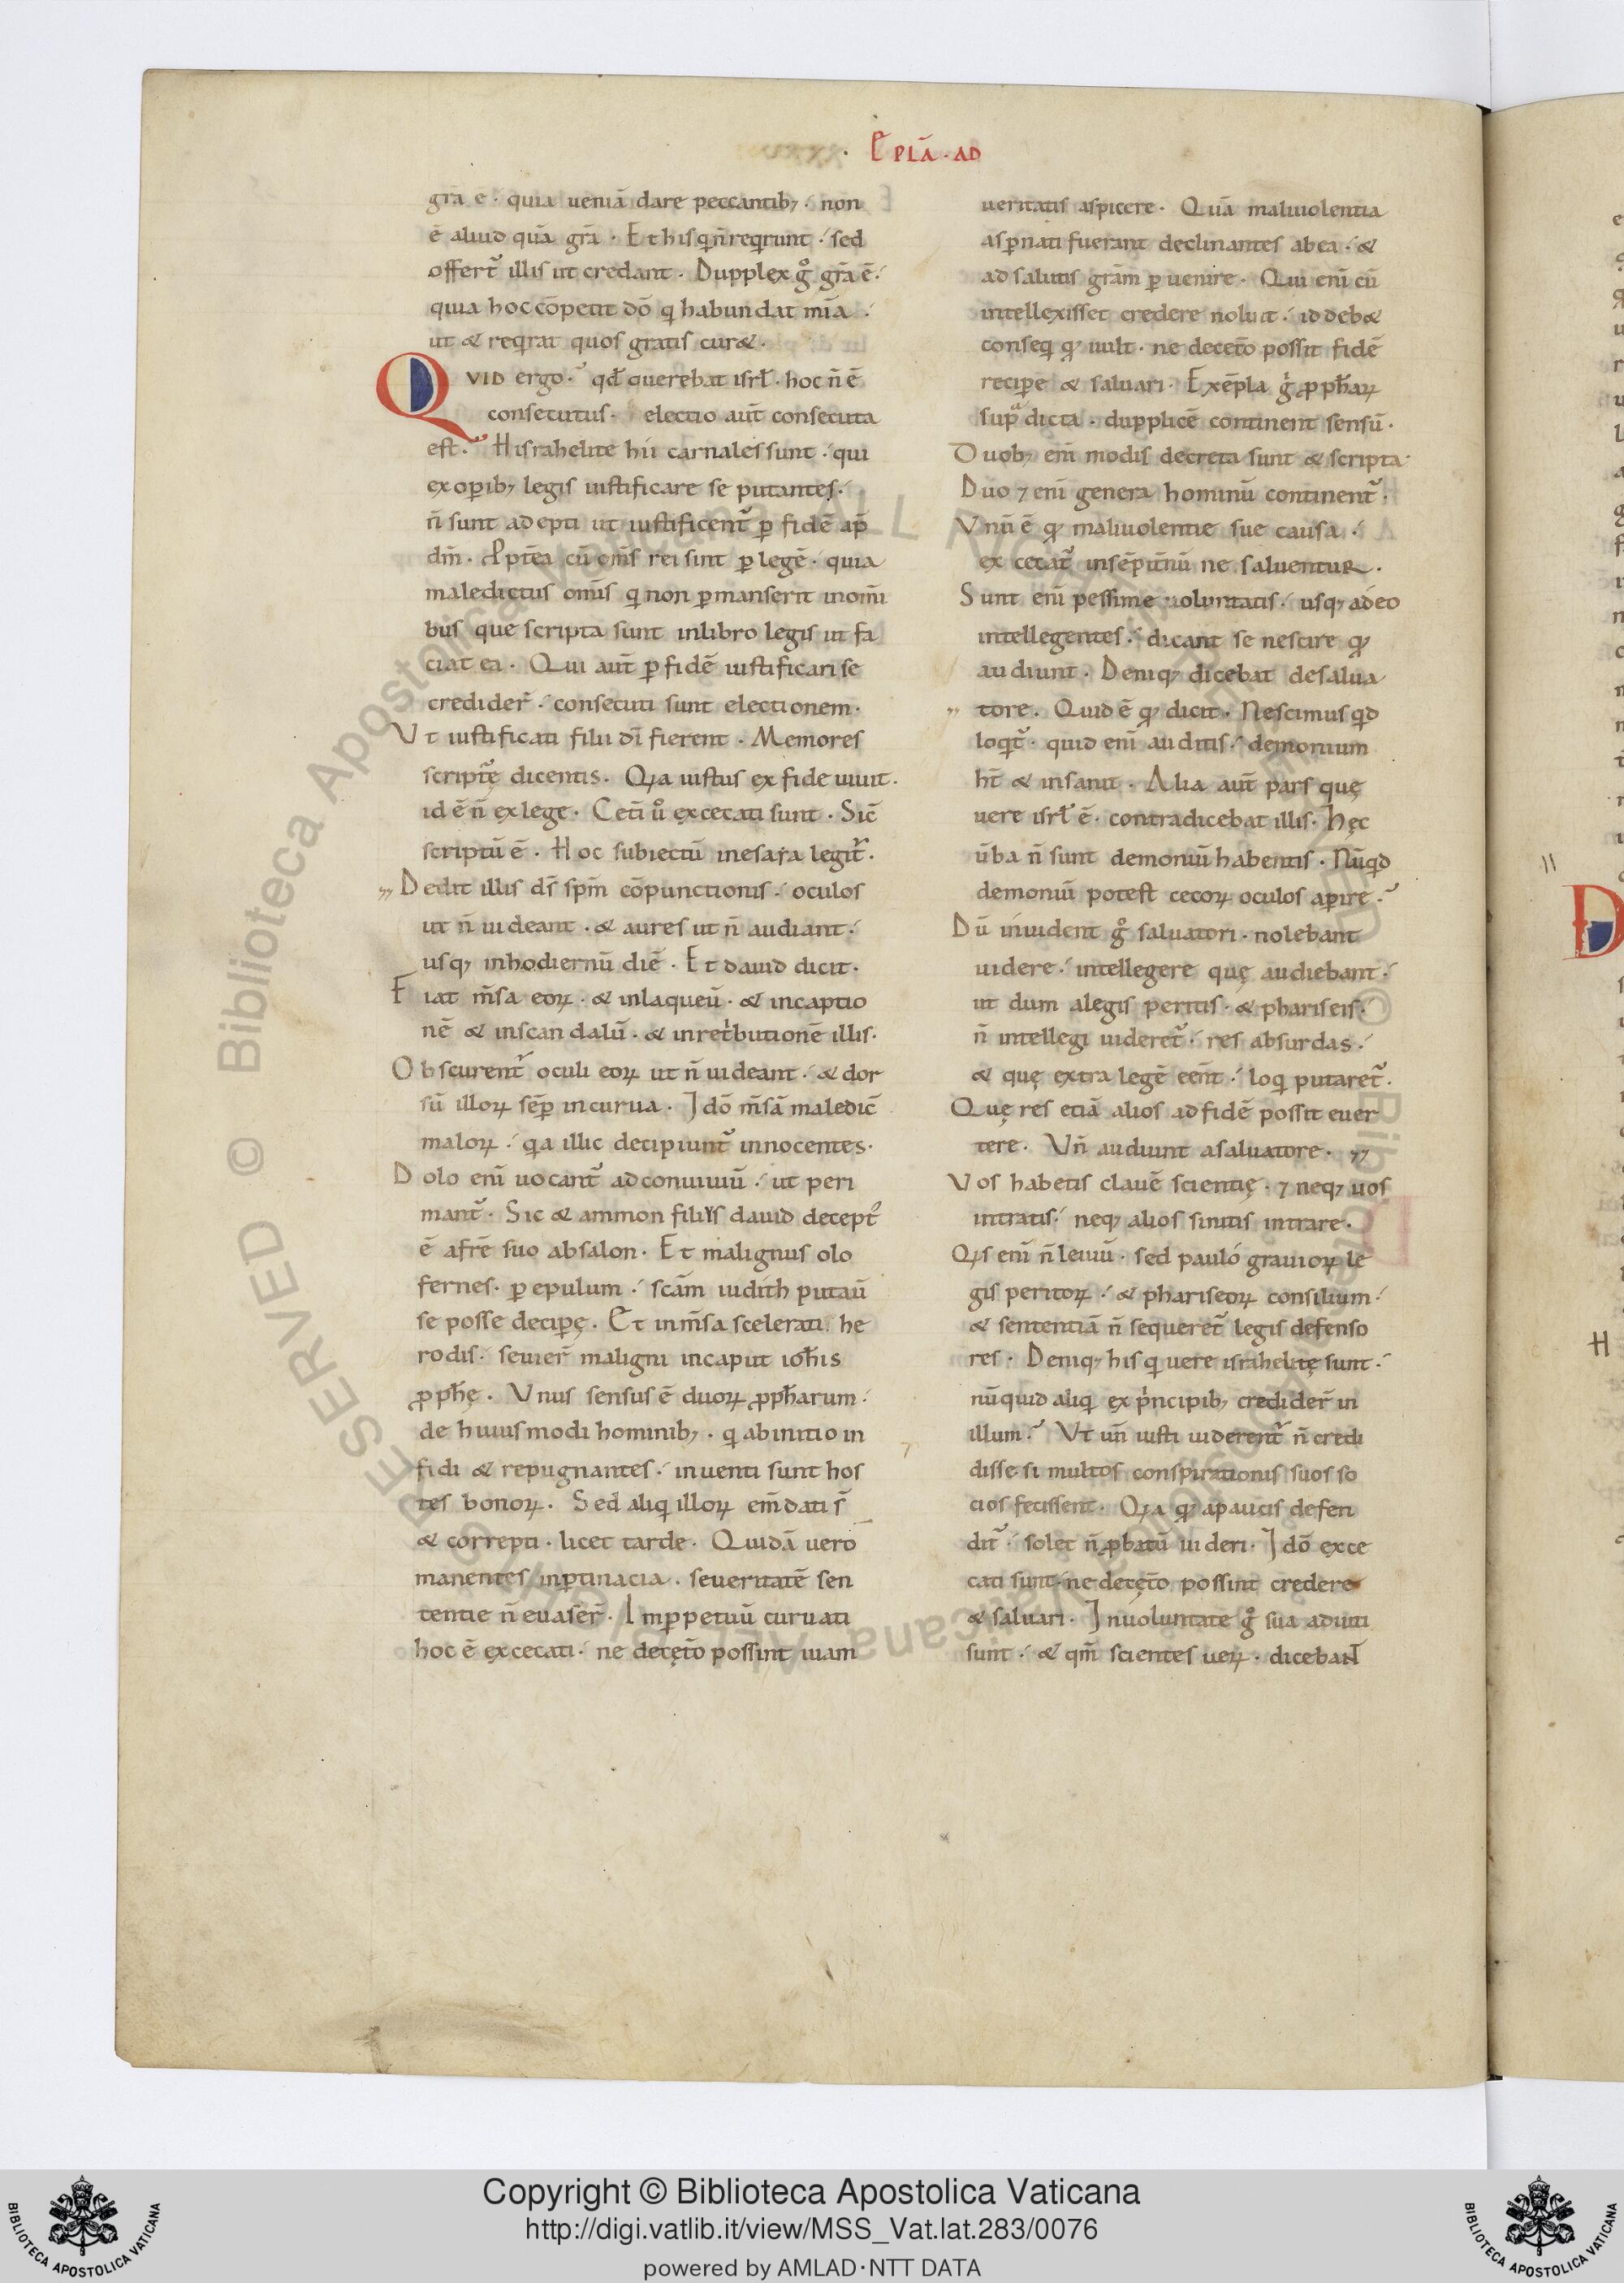 EPLA̅ · AD
gr̅a e̅ · quia uenia̅ dare peccantib; · non
e̅ aliud qua̅ gr̅a · Et his qi n̅ reqrunt · sed
offert᷑ illis ut credant · Dupplex gͦ gr̅a e̅ ·
quia hoc co̅petit do̅ qi habundat mi̅a ·
ut & reqrat quos gratis cur& ·
QVID ergo · qđ querebat isrł · hoc n̅ e̅
consecutus · electio aut̅ consecuta
est · Hisrahelite hii carnales sunt · qui
ex oꝑib; legis iustificare se putantes ·
n̅ sunt adepti ut iustificent᷑ ꝑ fide̅ ap̅
dm̅ · Ꝓpt̅ea cu̅ om̅s rei sint ꝑ lege̅ · quia
maledictus om̅is qi non ꝑmanserit in om̅i
bus que scripta sunt in libro legis ut fa
ciat ea · Qui aut̅ ꝑ fide̅ iustificari se
credider̅ · consecuti sunt electionem ·
Vt iustificati filii di̅ fierent · Memores
scriptę̅ dicentis · Qia iustus ex fide uiuit ·
id e̅ n̅ ex lege · Cet̅i uͦ excecati sunt · Sic̅
scriptu̅ e̅ · Hoc subiectu̅ in esaia legit᷑ ·
Dedit illis ds̅ spm̅ co̅punctionis · oculos
ut n̅ uideant · & aures ut n̅ audiant ·
usq; in hodiernu̅ die̅ · Et dauid dicit ·
Fiat m̅sa eoꝝ · & in laqueu̅ · & in captio
ne̅ & in scandalu̅ · & in retͥbutione̅ illis ·
Obscurent᷑ oculi eoꝝ ut n̅ uideant · & dor
su̅ illoꝝ se̅ꝑ incurua · Ido̅ m̅sa̅ maledic̅
maloꝝ · qia illic decipiunt᷑ innocentes ·
Dolo eni̅ uocant᷑ ad conuiuiu̅ · ut peri
mant᷑ · Sic & ammon filius dauid decept᷒
e̅ a fr̅e suo absalon · Et malignus olo
fernes · ꝑ epulum · sca̅m iudith putau̅
se posse deciꝑę · Et in m̅sa scelerati he
rodis · seuier̅ maligni in caput ioh̅is
ꝓph̅ę · Vnus sensus e̅ duoꝝ ꝓph̅arum ·
de huiusmodi hominib; · qi ab initio in
fidi & repugnantes · inuenti sunt hos
tes bonoꝝ · Sed aliqi illoꝝ em̅dati s̅
& correpti · licet tarde · Quida̅ uero
manentes in ꝑtinacia · seueritate̅ sen
tentie n̅ euaser̅ · Im ꝑpetuu̅ curuati
hoc e̅ excecati · ne decęt̅o possint uiam
ueritatis aspicere · Qua̅ maliuolentia
asꝑnati fuerant declinantes ab ea · &
ad salutis gra̅m ꝑuenire · Qui eni̅ cu̅
intellexisset credere noluit · id deb&
conseqi qͥ uult · ne decet̅o possit fide̅
reciꝑe & saluari · Exe̅pla gͥ ꝓph̅aꝝ
supᵃdicta · dupplice̅ continent sensu̅ ·
Duob; eni̅ modis decreta sunt & scripta ·
Duo ⁊ eni̅ genera hominu̅ continent᷑ ·
Vnu̅ e̅ qͥ maliuolentie sue causa ·
excecat᷑ in se̅pit̅nu̅ ne saluentur ·
Sunt eni̅ pessime uoluntatis · usq; adeo
intellegentes · dicant se nescire qͥ
audiunt · Deniq; dicebat de salua
tore · Quid e̅ qͥ dicit · Nescimus qid
loqit᷑ · quid eni̅ auditis · demonium
ht̅ & insanit · Alia aut̅ pars quę
uere isrł e̅ · contradicebat illis · Hęc
u̅ba n̅ sunt demoniu̅ habentis · Nu̅qid
demoniu̅ potest cecoꝝ oculos aꝑire ·
Du̅ inuident gͦ saluatori · nolebant
uidere · intellegere quę audiebant ·
ut dum a legis peritis · & phariseis ·
n̅ intellegi uideret᷑ · res absurdas ·
& quę extra lege̅ ee̅nt · loqi putaret᷑ ·
Quę res etia̅ alios ad fide̅ possit euer
tere · Vn̅ audiunt a saluatore ·
Vos habetis claue̅ scientię · ⁊ neq; uos
intratis · neq; alios sinitis intrare ·
Qis eni̅ n̅ leuiu̅ · sed paulo grauioꝝ le
gis peritoꝝ · & phariseoꝝ consilium ·
& sententia̅ n̅ sequeret᷑ legis defenso
res · Deniq; his qi uere israhelitę sunt ·
nu̅quid aliqi ex pͥncipib; credider̅ in
illum · Vt un̅ iusti uiderent᷑ n̅ credi
disse si multos conspirationis suos so
cios fecissent · Qia qͥ a paucis defen
dit᷑ · solet n̅ ꝓbatu̅ uideri · Ido̅ exce
cati sunt · ne decęt̅o possint credere
& saluari · In uoluntate gͦ sua adiuti
sunt · & qm̅ scientes ueꝝ · dicebant
Copyright © Biblioteca Apostolica Vaticana
http://digi.vatlib.it/view/MSS_Vat.lat.283/0076
powered by AMLAD·NTT DATA
BIBLIOTECA APOSTOLICA VATICANA
BIBLIOTECA APOSTOLICA VATICANA